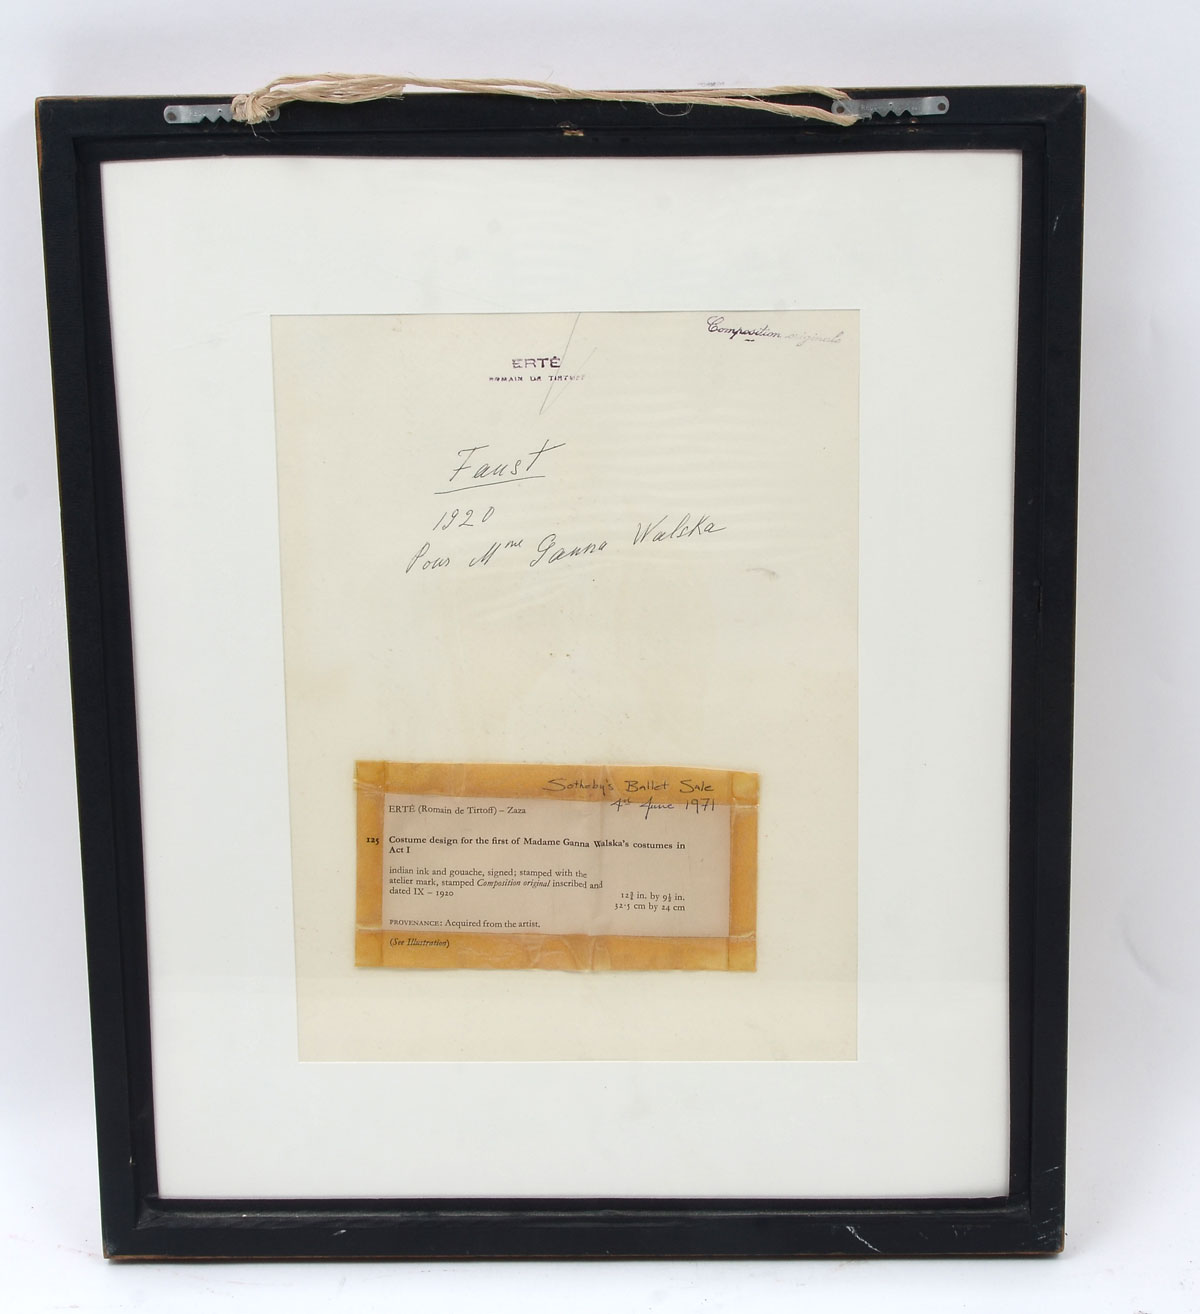 Composition originale
ERTÉ
ROMAIN DE TIRTOFF
Faust
1920
Pour Mme Ganna Walska
Sotheby's Ballet Sale
4th June 1971
ERTÉ (Romain de Tirtoff) – Zaza
125 Costume design for the first of Madame Ganna Walska's costumes in
Act I
indian ink and gouache, signed; stamped with the
atelier mark, stamped Composition original inscribed and
dated IX – 1920
12¾ in. by 9½ in.
32·5 cm by 24 cm
PROVENANCE: Acquired from the artist.
(See Illustration)